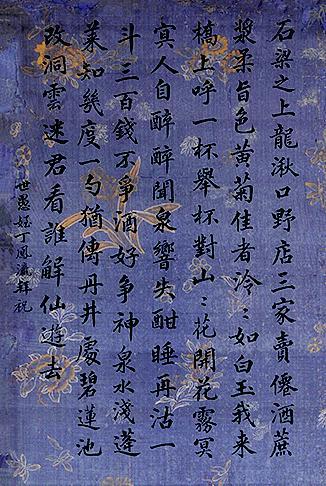 石梁之上龍湫口野店三家賣僊酒蔗
漿柔旨色黃菊佳者泠〻如白玉我来
橋上呼一杯舉杯對山〻花開花霧冥
冥人自醉醉聞泉響失酣睡再沽一
斗三百錢不爭酒好爭神泉水淺蓬
莱知幾度一勺猶傳丹井處碧蓮池
改洞雲迷君看誰解仙遊去
世愚姪丁鳳瀛拜祝